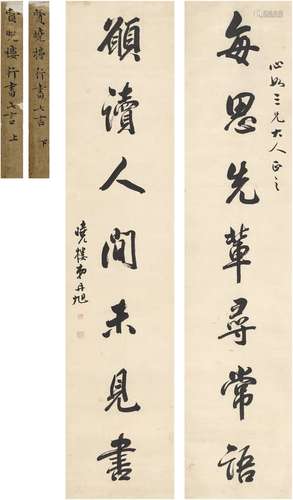 心如三兄大人正之
每思先輩尋常語
願讀人間未見書
曉樓弟丹旭
費曉樓行書七言 下
費曉樓行書七言 上